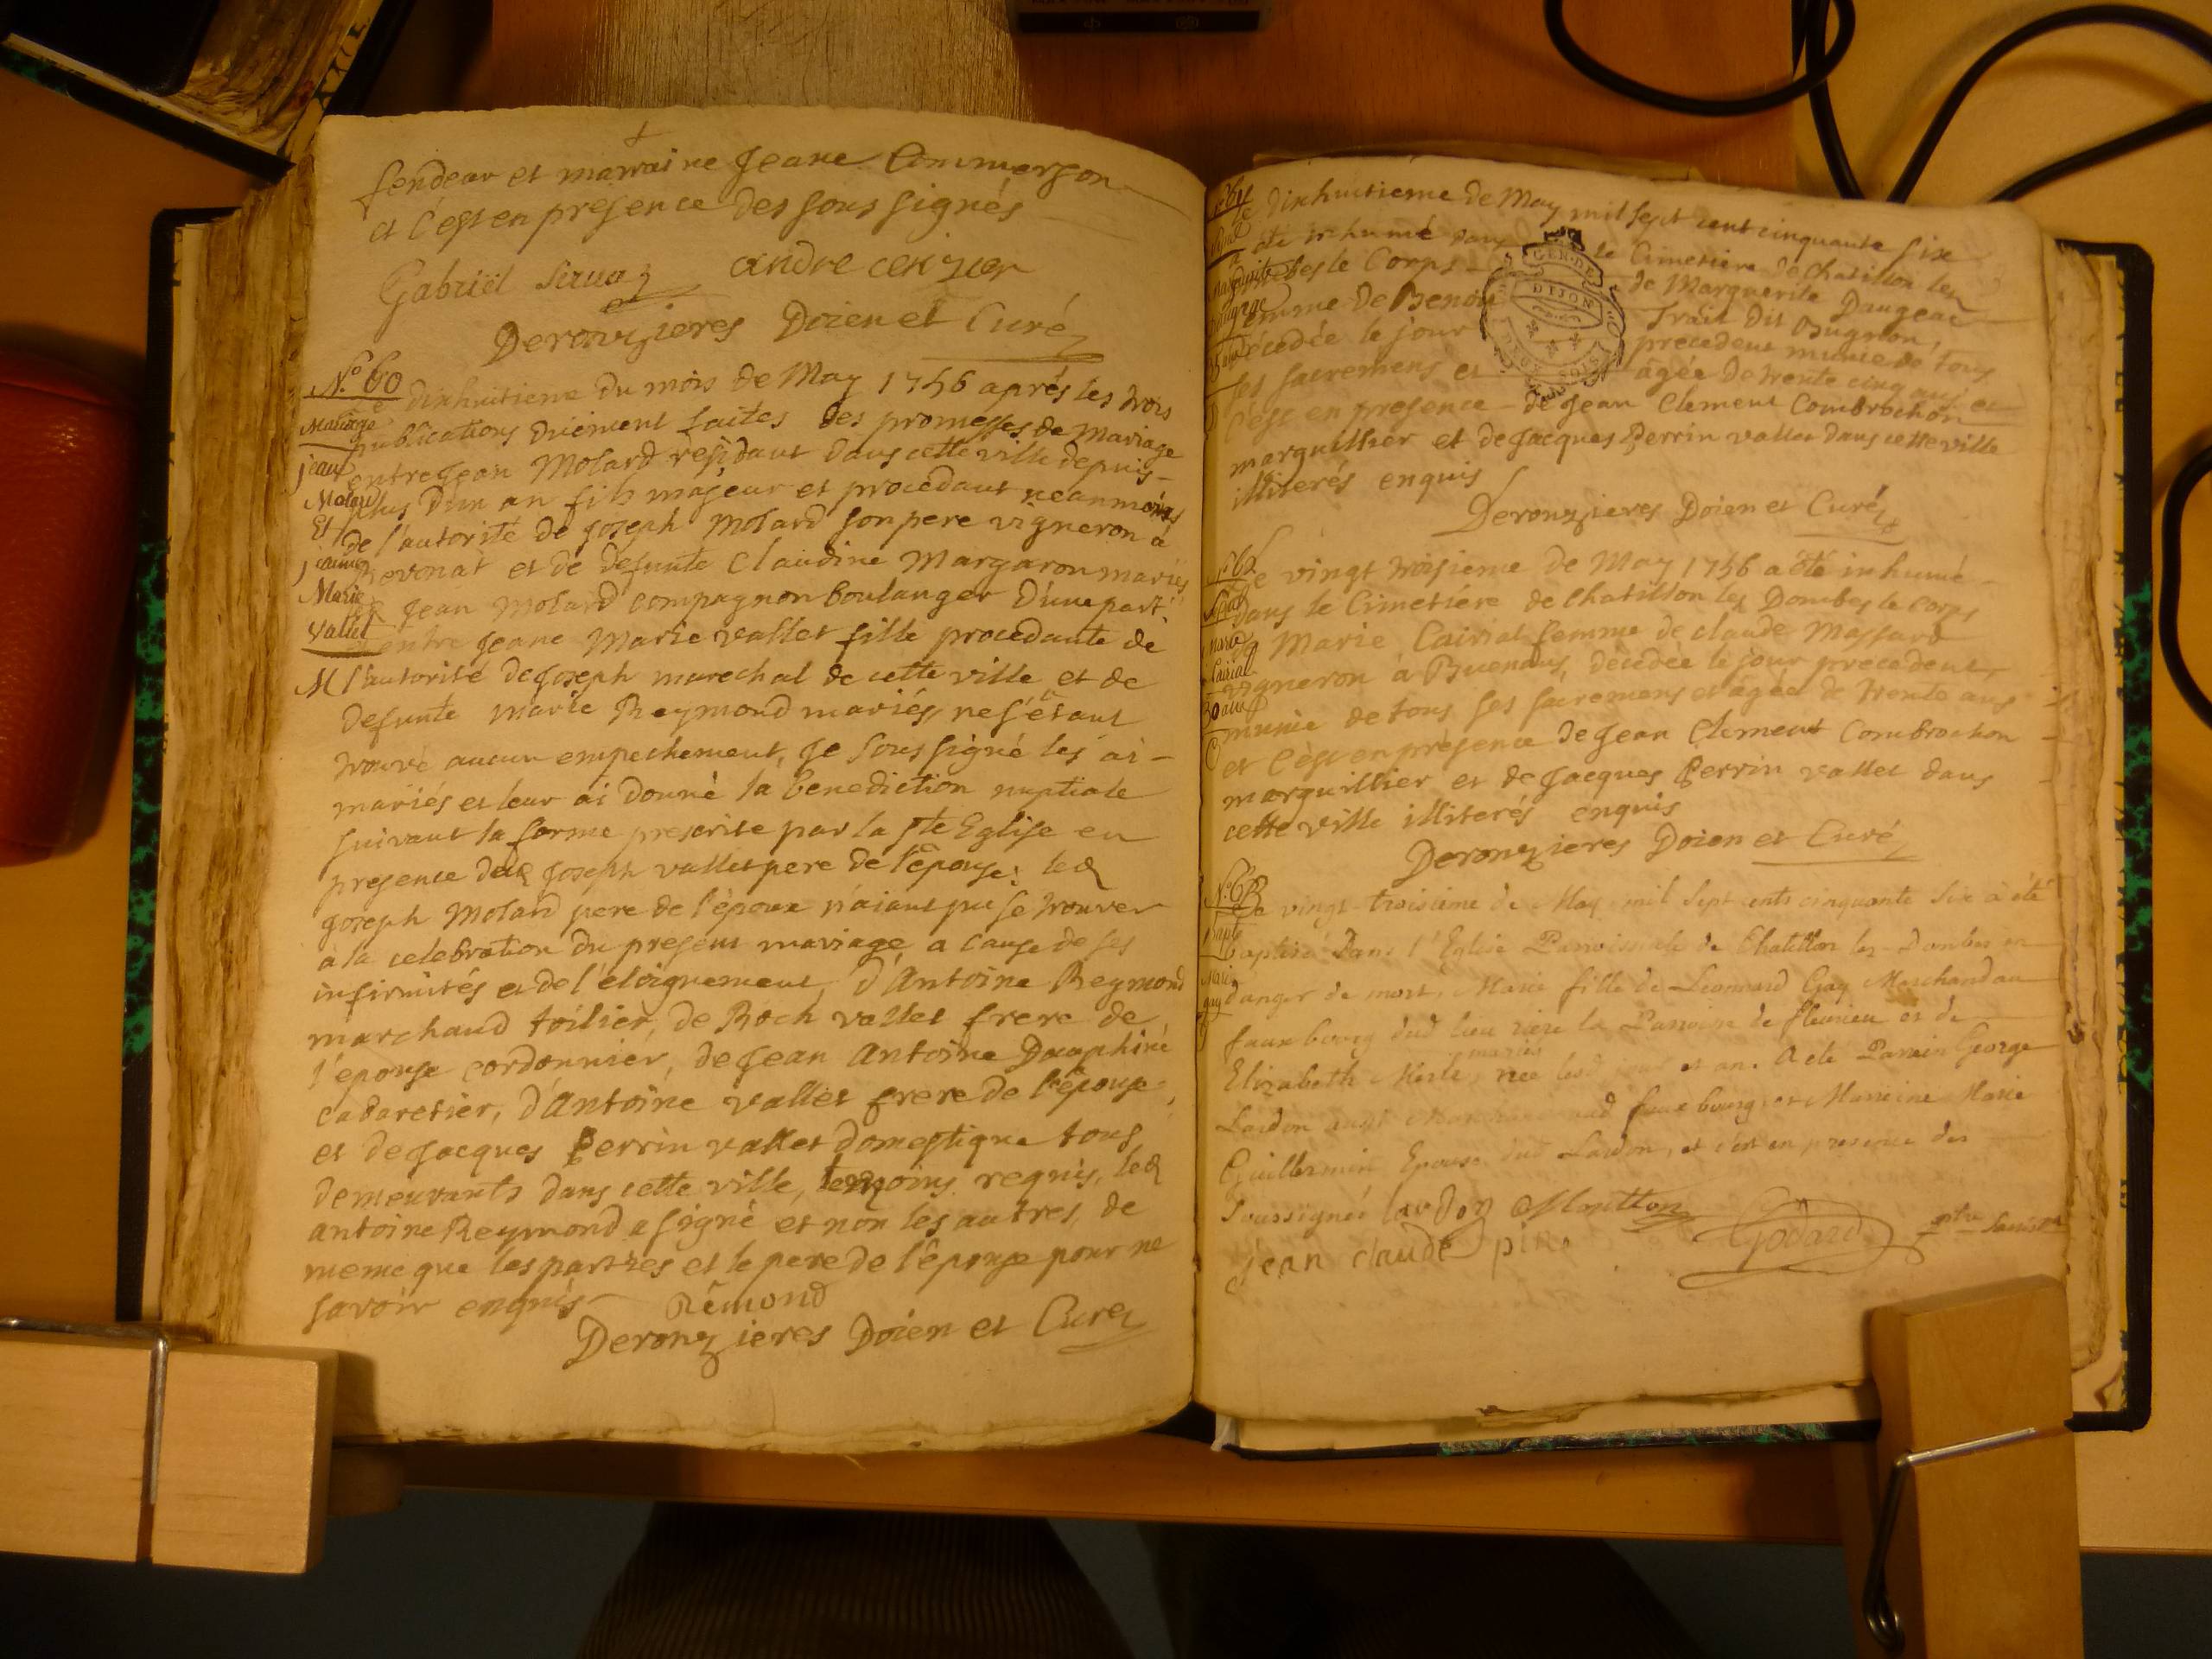 fendeur et marraine Jeane Commerson
et c'est en presence des soussignés
Gabriël andre
Deronzieres Doien et Curé
N.º 60
Mariage
jean
Molard
Et
jeanne
Marie
Vallet
M
Le dixhuitieme du mois de May 1756 aprés les trois
publications duëment faites des promesses de mariage
entre Jean Molard residant dans cette ville depuis
plus d'un an fils majeur et procedant neanmoins
de l'autorité de Joseph Molard son pere vigneron à
et de defunte Claudine Margaron mariés
led Jean Molard compagnon boulanger d'une part
et entre Jeane Marie vallet fille procedante de
l'autorité de Joseph marechal de cette ville et de
defunte marie Reymond mariés, ne s'étant
trouvé aucun empechement, Je soussigné les ai
mariés et leur ai donné la benediction nuptiale
suivant la forme prescrite par la ste Eglise en
presence dud Joseph vallet pere de l'épouse: led
Joseph Molard pere de l'époux n'aiant pu se trouver
à la celebration du present mariage a cause de ses
infirmités et de l'éloignement d'Antoine Reymond
marchand toilier, de Roch vallet frere de
l'épouse cordonnier, de Jean Antoine Dauphiné
cabaretier, d'Antoine vallet frere de l'épouse,
et de Jacques Perrin vallet domestique tous
demeurants dans cette ville, temoins requis, led
antoine Reymond a signé et non les autres, de
meme que les parties et le pere de l'épouse pour ne
savoir enquis Rémond
Deronzieres Doien et Curé
35 ans
Le dixhuitieme de May mil sept cent cinquante six
a été inhumé dans le Cimetiere de Chatillon les
Dombes le Corps de Marguerite Daugear
femme de Benoit Trait dit Bugnon,
decedée le jour precedent munie de tous
ses sacremens et âgée de trente cinq ans et
c'est en presence de Jean Clement Combrochon
marguillier et de Jacques Perrin vallet dans cette ville
illiterés enquis
Deronzieres Doien et Curé
N.º 62
marie
Cairial
30 ans
Le vingt troisieme de May 1756 a été inhumé
dans le Cimetiére de Chatillon les Dombes le corps
de Marie Cairial femme de claude Massard
vigneron à Buenans, décédée le jour precedent,
munie de tous ses sacremens et âgée de trente ans
et c'est en présence de Jean Clement Combrochon
marguillier et de Jacques Perrin vallet dans
cette ville illiterés enquis
Deronzieres Doien et Curé
N.º 63
Bapte
Marie
gay
Le vingt-troisieme de May mil sept cents cinquante six a été
baptisé dans l'Eglise Parroissiale de Chatillon les-Dombes en
danger de mort, Marie fille de Léonnard Gay Marchand au
faux bourg dud lieu riere la Parroisse de fleurieu et de
Elizabeth Merle, mariés née lesd jour et an. A été Parrain George
Lardon aud faux bourg, et Marreine Marie
Guillermin Epouse dud Lardon, et c'est en presence des
soussignés lardon
Godard ptre
jean claude
GEN. DE DIJON